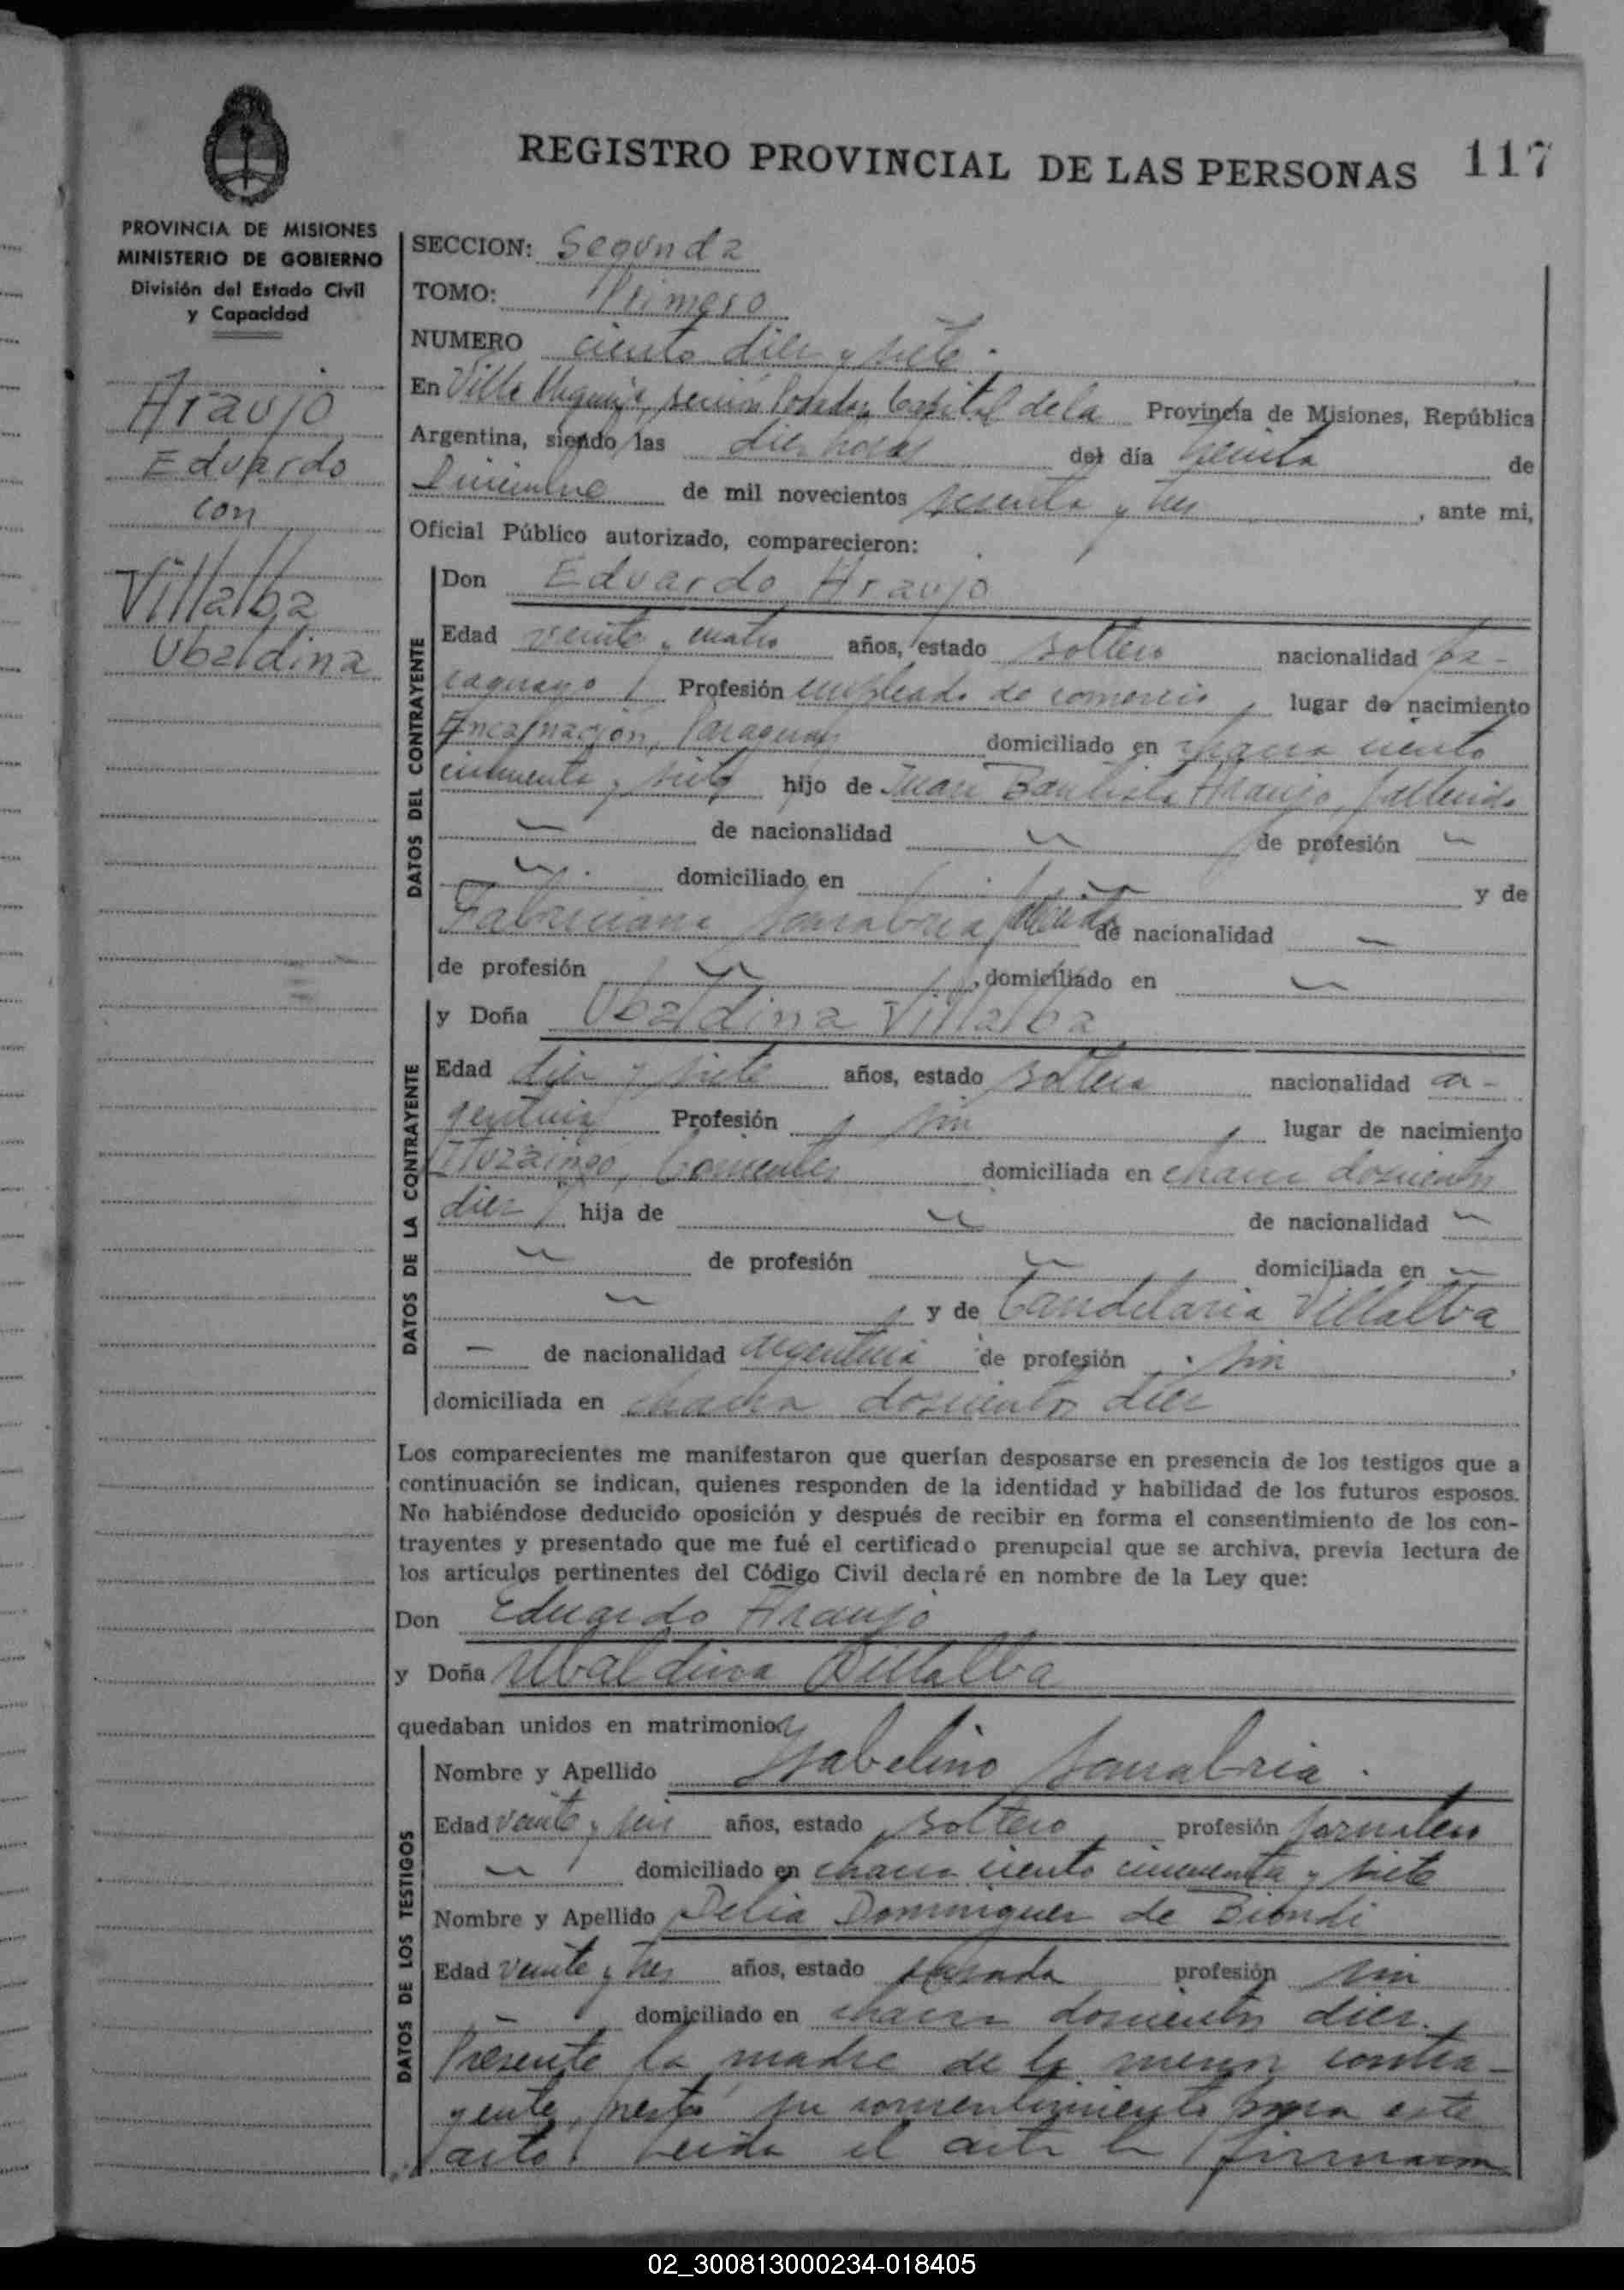 REGISTRO PROVINCIAL DE LAS PERSONAS 117
PROVINCIA DE MISIONES
MINISTERIO DE GOBIERNO
División del Estado Civil
y Capacidad
Araujo
Eduardo
con
Villalba
Ubaldina
SECCION: Segunda
TOMO: Primero
NUMERO ciento diez y siete.
En Villa Urquiza, sección Posadas Capital de la Provincia de Misiones, República
Argentina, siendo las diez horas del día treinta de
Diciembre de mil novecientos sesenta y tres, ante mi,
Oficial Público autorizado, comparecieron:
DATOS DEL CONTRAYENTE
Don Eduardo Araujo
Edad veinte y cuatro años, estado soltero nacionalidad pa-
raguayo, Profesión empleado de comercio, lugar de nacimiento
Encarnación, Paraguay domiciliado en chacra ciento
cincuenta y siete hijo de Juan Bautista Araujo, fallecido
de nacionalidad de profesión
domiciliado en y de
Fabriciana Sanabria, fallecida de nacionalidad
de profesión, domiciliado en
DATOS DE LA CONTRAYENTE
y Doña Ubaldina Villalba
Edad diez y siete años, estado soltera nacionalidad ar-
gentina Profesión, sin, lugar de nacimiento
Ituzaingo, Corrientes domiciliada en chacra doscientos
diez, hija de de nacionalidad
de profesión domiciliada en
, y de Candelaria Villalba
— de nacionalidad argentina de profesión sin,
domiciliada en chacra doscientos diez
Los comparecientes me manifestaron que querían desposarse en presencia de los testigos que a
continuación se indican, quienes responden de la identidad y habilidad de los futuros esposos.
No habiéndose deducido oposición y después de recibir en forma el consentimiento de los con-
trayentes y presentado que me fué el certificado prenupcial que se archiva, previa lectura de
los artículos pertinentes del Código Civil declaré en nombre de la Ley que:
Don Eduardo Araujo
y Doña Ubaldina Villalba
quedaban unidos en matrimonio
DATOS DE LOS TESTIGOS
Nombre y Apellido Ysabelino Sanabria.
Edad veinte y seis años, estado soltero profesión jornalero
domiciliado en chacra ciento cincuenta y siete
Nombre y Apellido Delia Dominguez de Biondi
Edad veinte y tres años, estado casada profesión sin
domiciliado en chacra doscientos diez.
Presente la madre de la menor contra-
yente, prestó su consentimiento para este
acto. Leida el acta la firmaron
02_300813000234-018405